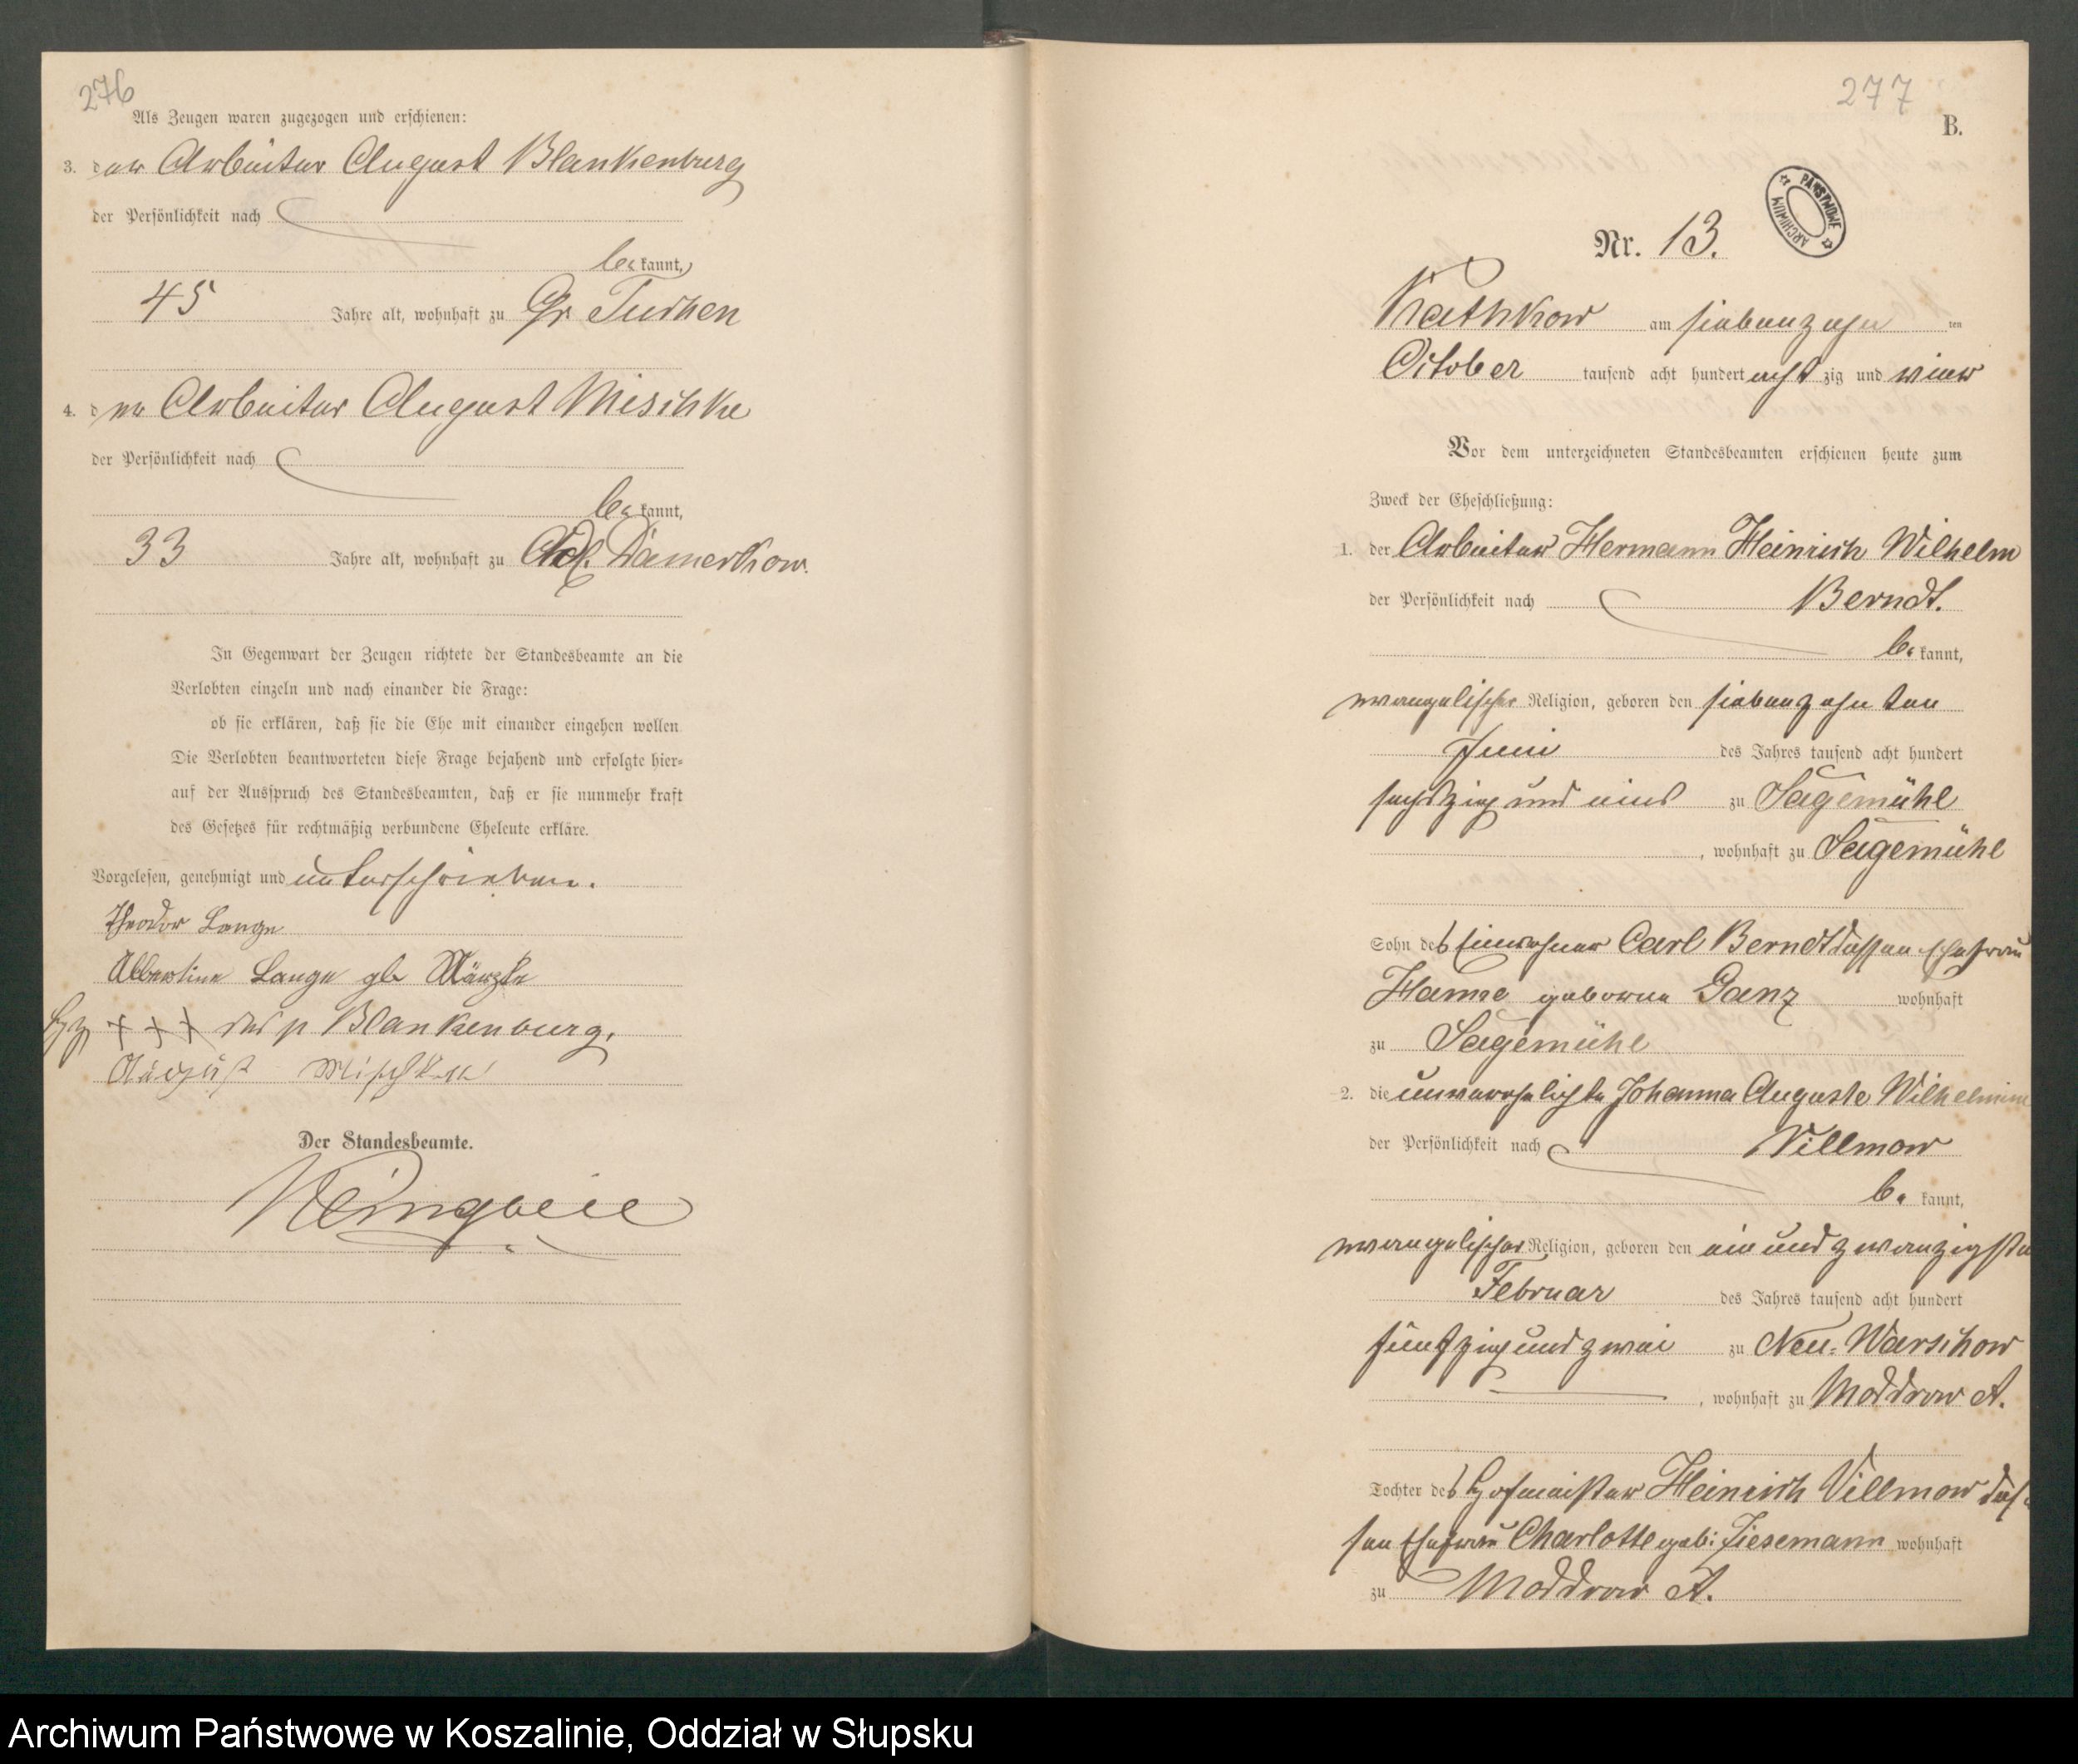 276
Als Zeugen waren zugezogen und erschienen:
3. der Arbeiter August Blankenburg
der Persönlichkeit nach
be kannt,
45 Jahre alt, wohnhaft zu Gr. Tuchen
4. der Arbeiter August Mischke
der Persönlichkeit nach
be kannt,
33 Jahre alt, wohnhaft zu Adl. Damerkow.
In Gegenwart der Zeugen richtete der Standesbeamte an die
Verlobten einzeln und nach einander die Frage:
ob sie erklären, daß sie die Ehe mit einander eingehen wollen
Die Verlobten beantworteten diese Frage bejahend und erfolgte hier=
auf der Ausspruch des Standesbeamten, daß er sie nunmehr kraft
des Gesetzes für rechtmäßig verbundene Eheleute erkläre.
Vorgelesen, genehmigt und unterschrieben.
Theodor Lange
Albertine Lange gb
Hz + + + des p Blankenburg.
August Mischke
Der Standesbeamte.
277
B.
ARCHIWUM PAŃSTWOWE
Nr. 13.
Kathkow am siebenzehn ten
October tausend acht hundert acht zig und vier
Vor dem unterzeichneten Standesbeamten erschienen heute zum
Zweck der Eheschließung:
1. der Arbeiter Hermann Heinrich Wilhelm
der Persönlichkeit nach Berndt.
be kannt,
evangelischer Religion, geboren den siebenzehn ten
Juni des Jahres tausend acht hundert
sechszig und eins zu Sägemühl
, wohnhaft zu Sägemühl
Sohn des Einwohner Carl Berndt dessen Ehefrau
Hanne geborene Ganz wohnhaft
zu Sägemühl
2. die unverehelichte Johanna Auguste Wilhelmine
der Persönlichkeit nach Villmow
be kannt,
evangelischer Religion, geboren den ein und zwanzigsten
Februar des Jahres tausend acht hundert
fünfzig und zwei zu Neu=Warschow
, wohnhaft zu Moddrow A.
Tochter des Hofmeister Heinrich Villmow des=
sen Ehefrau Charlotte geb: Ziesemann wohnhaft
zu Moddrow A.
Archiwum Państwowe w Koszalinie, Oddział w Słupsku